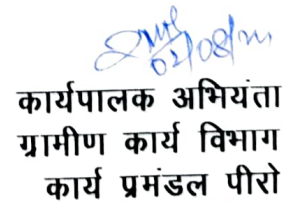 02/08/22
कार्यपालक अभियंता
ग्रामीण कार्य विभाग
कार्य प्रमंडल पीरो